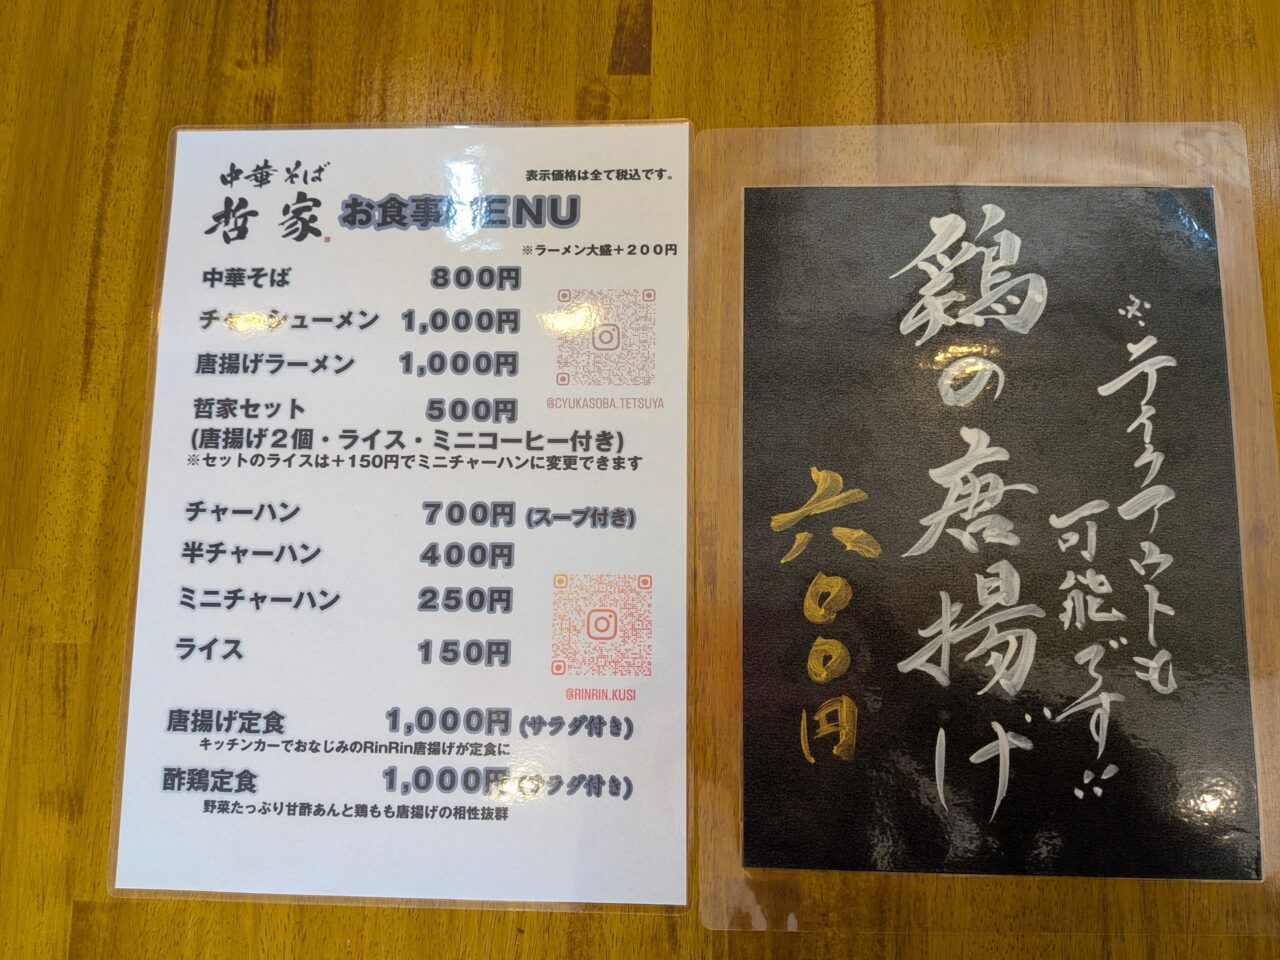 中華そば
哲家
表示価格は全て税込です。
お食事MENU
※ラーメン大盛＋200円
中華そば 800円
チャーシューメン 1,000円
唐揚げラーメン 1,000円
@CYUKASOBA.TETSUYA
哲家セット 500円
(唐揚げ2個・ライス・ミニコーヒー付き)
※セットのライスは＋150円でミニチャーハンに変更できます
チャーハン 700円 (スープ付き)
半チャーハン 400円
ミニチャーハン 250円
ライス 150円
@RINRIN.KUSI
唐揚げ定食 1,000円 (サラダ付き)
キッチンカーでおなじみのRinRin唐揚げが定食に
酢鶏定食 1,000円 (サラダ付き)
野菜たっぷり甘酢あんと鶏もも唐揚げの相性抜群
※テイクアウトも
可能です!!
鶏の唐揚げ
六〇〇円